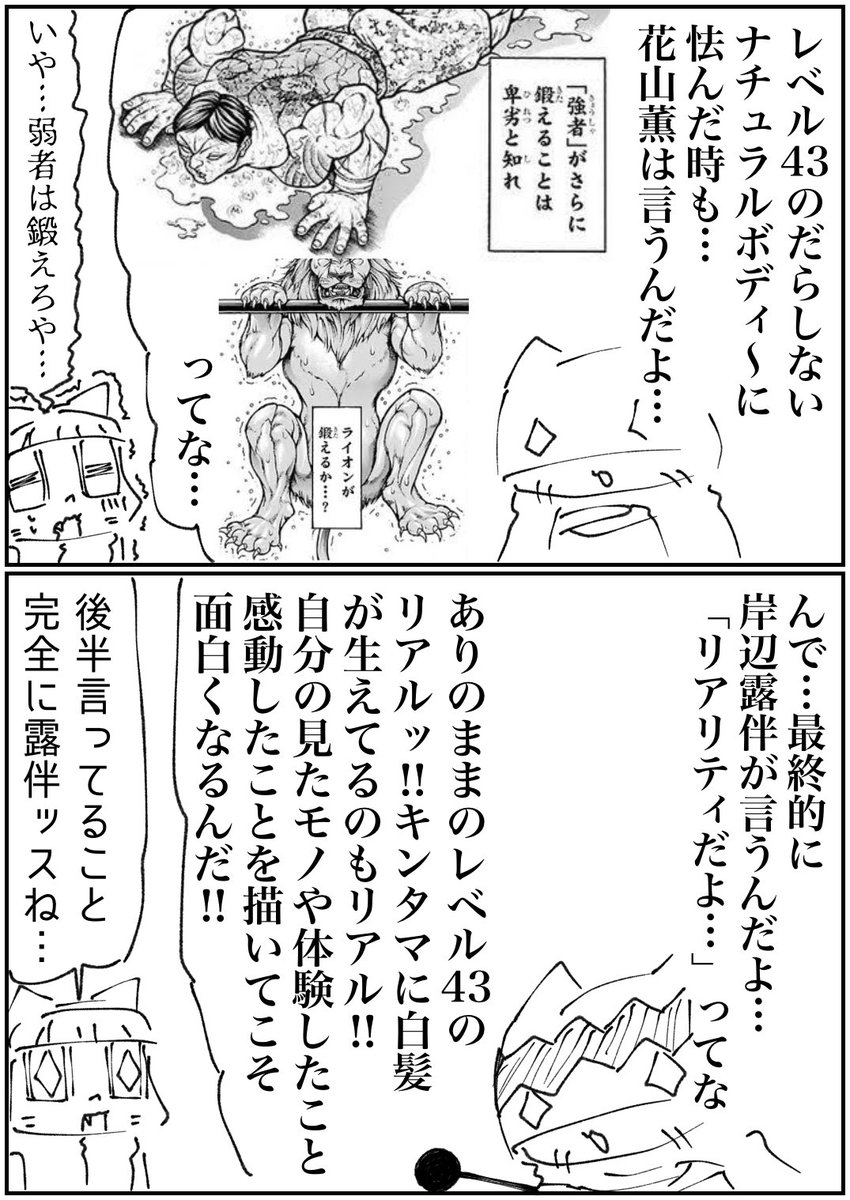 レベル43のだらしない
ナチュラルボディ〜に
怯んだ時も…
花山薫は言うんだよ…
「強者」がさらに
鍛えることは
卑劣と知れ
ライオンが
鍛えるか…?
ってな…
いや…弱者は鍛えろや…
んで…最終的に
岸辺露伴が言うんだよ…
「リアリティだよ…」ってな
ありのままのレベル43の
リアルッ!!キンタマに白髪
が生えてるのもリアル!!
自分の見たモノや体験したこと
感動したことを描いてこそ
面白くなるんだ!!
後半言ってること
完全に露伴ッスね…